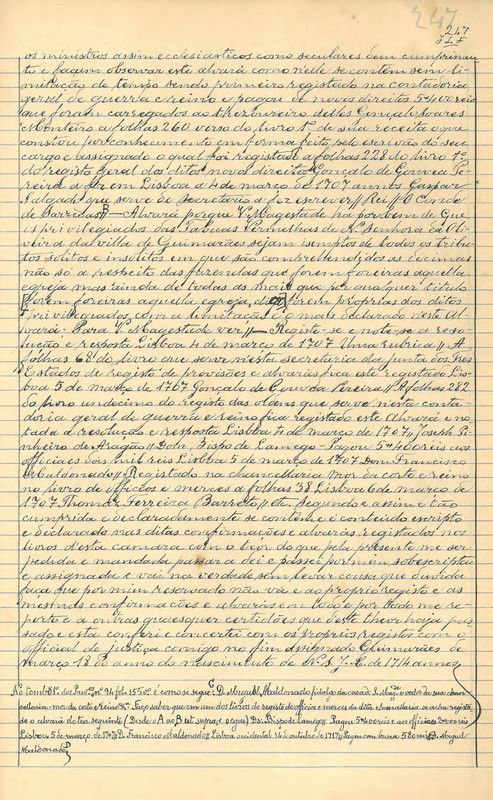 247
247
os ministros assim ecclesiasticos como seculares dem cumprimen
to e façam observar este alvará como nelle se contêm sem li
mitação de tempo sendo primeiro registado na contadoria
geral de guerra e reino e pagou de novos direitos 5400 reis
que foram carregados ao thezoureiro delles Gonçalo Soares
Monteiro a folhas 260 verso do livro 1º de sua receita o que
constou por conhecimento em forma feito pelo escrivão do seu
cargo e assignado o qual foi registado a folhas 228 do livro 1º
do registo geral dos ditos novos direitos Gonçalo de Gouvea Pe
reira a fez em Lisboa a 4 de março de 1707 annos Gaspar
Salgado que serve de secretario a fez escrever // Rei // O Conde
de // — Alvará porque V. Magestade ha por bem de que
os privilegiados das Taboas Vermelhas de N. Senhora da Oli
veira da villa de Guimarães sejam isemptos de todos os tribu
tos solitos e insolitos em que são comprehendidos as decimas
não só a respeito das fazendas que forem foreiras aquella
egreja mas ainda de todas as mais que por qualquer titulo
forem foreiras aquella egreja, forem proprias dos ditos
privilegiados com a limitação e o mais declarado neste Al
vará: Para V. Magestade ver // — Registe-se e note-se a reso
lução e resposta Lisboa 4 de março de 1707 Uma rubrica // A
folhas 68 do livro que serve nesta secretaria da junta dos Tres
Estados de registo de provisões e alvarás fica este registado Lis
boa 5 de março de 1707 Gonçalo de Gouvea Pereira // A folhas 282
do livro undecimo do registo das ordens que serve nesta conta
doria geral de guerra e reino fica registado este Alvará e no
tada a resolução e resposta Lisboa 4 de março de 1707 // Joseph Pi
nheiro de Aragão // Dom, Bispo de Lamego Pagou 5400 reis aos
officiaes dois mil reis Lisboa 5 de março de 1707 Dom Francisco
Maldonado // Registado na chancellaria mor da corte e reino
no livro de officios e merces a folhas 38 Lisboa 6 de março de
1707 Thomaz Ferreira Barreto // E Segundo e assim e tão
cumprida e declaradamente se contem, e é conteúdo escripto
e declarado nas ditas confirmações e alvarás registados nos
livros desta camara com o teor do que pela presente me ser
pedida e mandada passar a dei e passei por mim sobescripta
e assignada e vai na verdade sem levar cousa que duvida
faça que por mim reservado não vá e ao proprio registo e as
mesmas confirmações e alvarás em todo e por todo me re
porto e a outras quaesquer certidões que deste theor haja pas
sado e esta conferi e concertei com os proprios registos com o
official de justiça comigo no fim assignado Guimarães de
março 18 do anno do nascimento de N. S. J. C. de 1714 annos
No é como se segue: D. Miguel Maldonado fidalgo da casa de S. Mag.de vedor da sua chan
cellaria mor da corte e reino &ª Faço saber que em um dos livros do registo de officios e merces da dita chancellaria se acha regista
do o alvará do teor seguinte (Desde o A ao B ut supra, e segue) Ds. Bispo de Lamego. Pagou 5400 reis e aos officiaes 2000 reis
Lisboa 5 de março de 1707 D. Francisco Maldonado // Lisboa occidental 14 de outubro de 1717 // Pagou com busca 580 reis D. Miguel
Maldonado